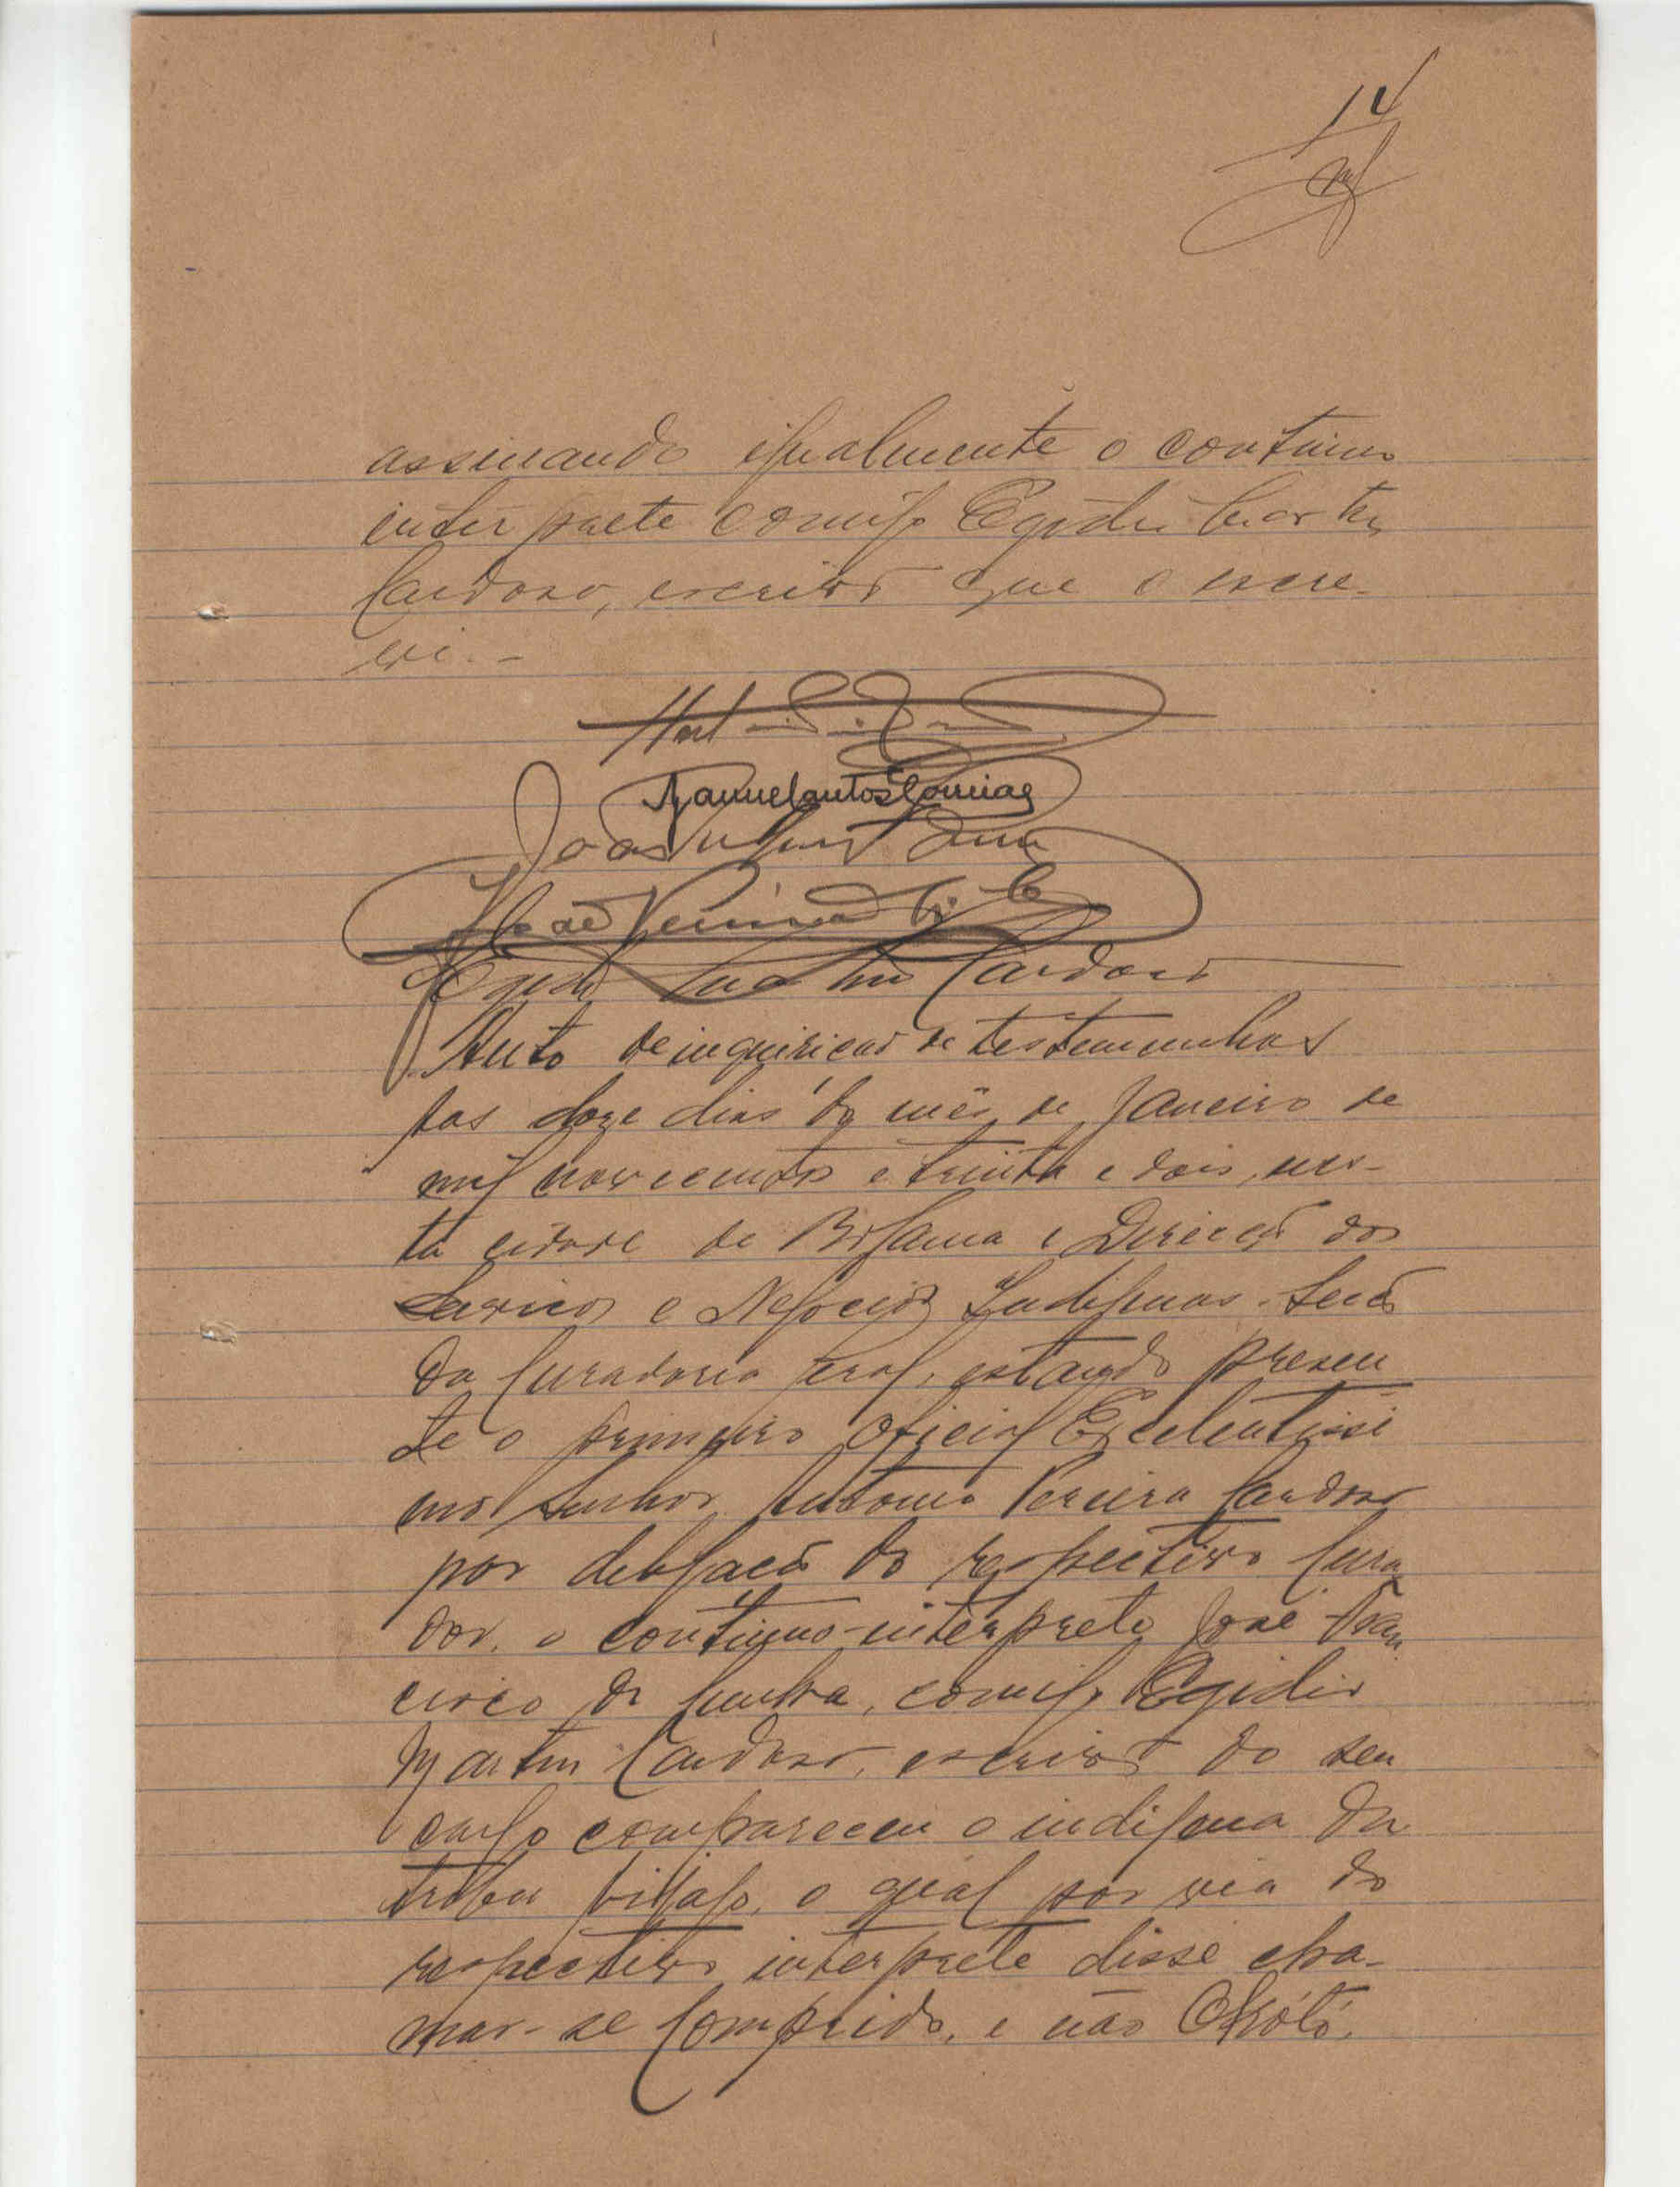 14
assinando igualmente o contínuo
interprete comigo Egidio Martins
Cardoso, escrivão que o escre-
vi. -
Manuel Santos Correia
João
Egidio Martins Cardoso
Auto de inquirição de testemunhas
Aos doze dias do mês de Janeiro de
mil novecentos e trinta e dois, nes-
ta cidade de Bolama e Direcção dos
Serviços e Negocios Indigenas. Secção
da Curadoria Geral, estando presen
te o primeiro oficial Excelentissi
mo Senhor Antonio Pereira Cardoso
por delegação do respectivo Cura
dor, o contínuo-interprete José Fran
cisco da Cunha, comigo Egidio
Martins Cardoso, escrivão do seu
cargo compareceu o indigena da
tribu bijagó, o qual por via do
respectivo interprete disse cha-
mar-se Comprido, e não Okótó.